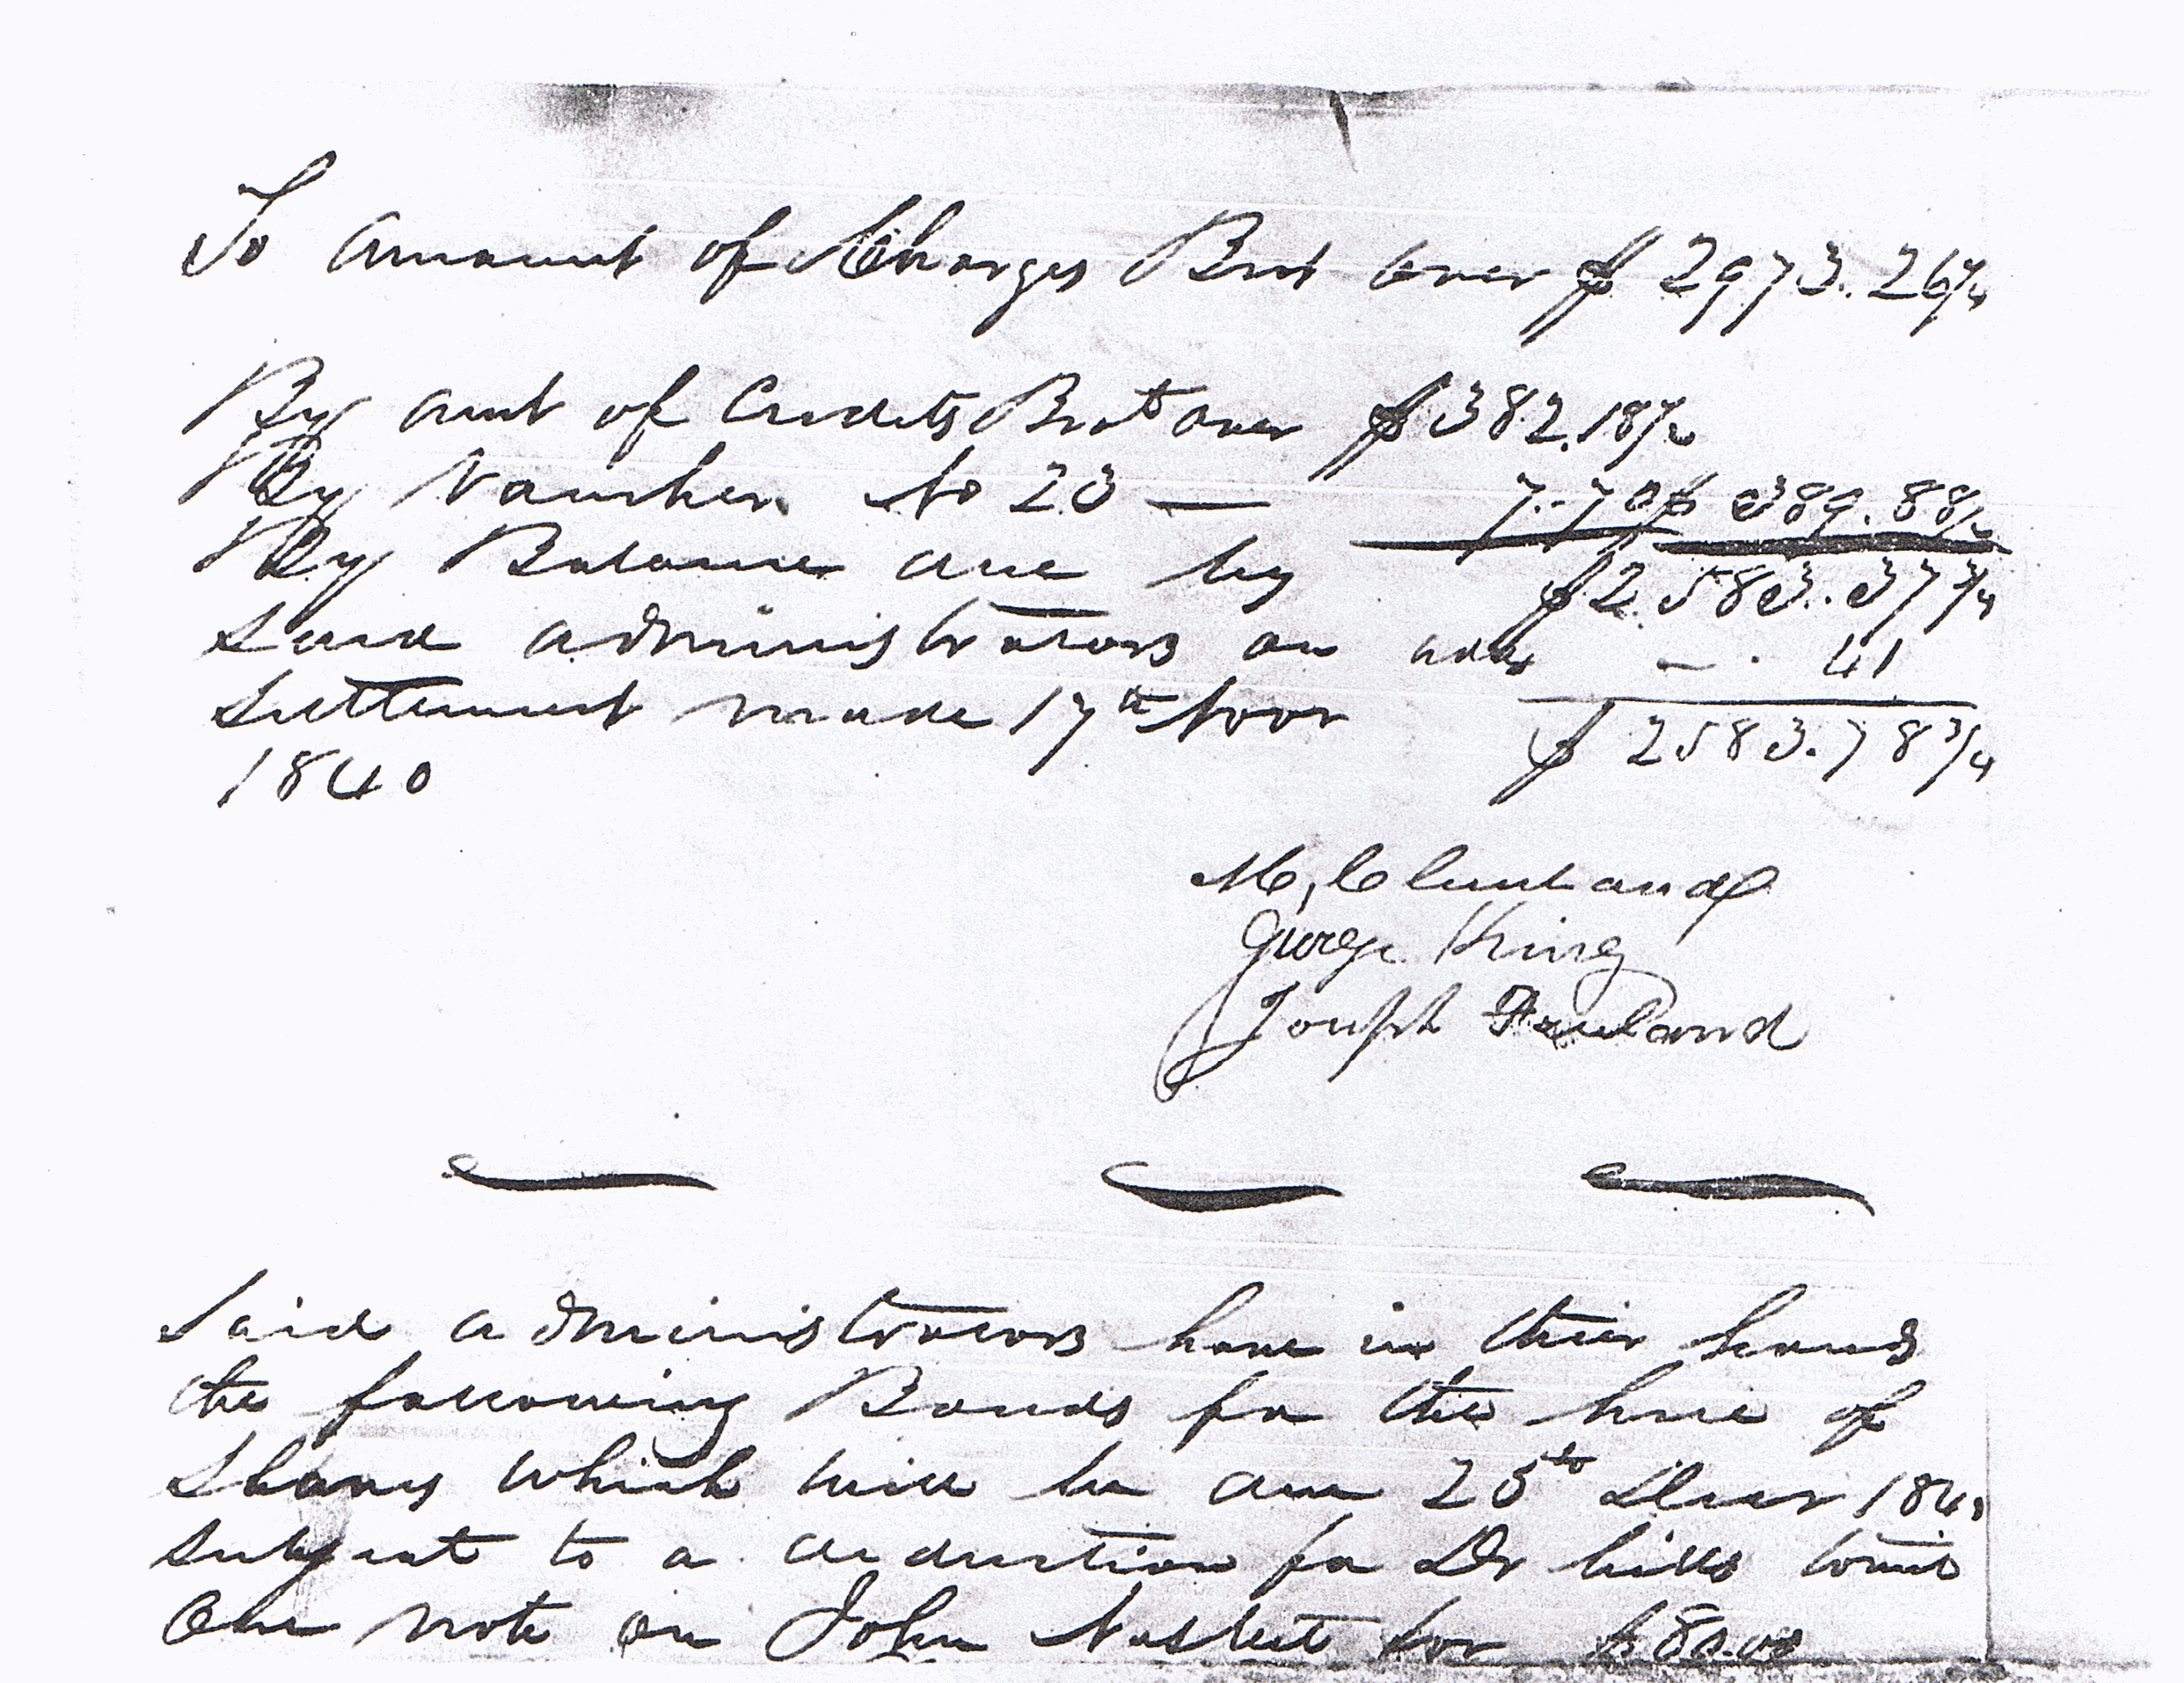 To amount of Charges Brot over $ 2973.26 1/4
By amt of Credits Brot over $ 382.18 1/2
By Voucher No 23 — 7.70 $ 389.88 1/2
By Balance due by $ 2583.37 3/4
said administrators on and — . 41
settlement made 17th Novr $ 2583.78 3/4
1840
M, Cleveland
George King
Joseph Freeland
Said administrators have in their hands
the following Bonds for the hire of
Slaves which will be due 25th Decr 184
subject to a deduction for Dr bills towit
One note on John Nesbeit for $80.00